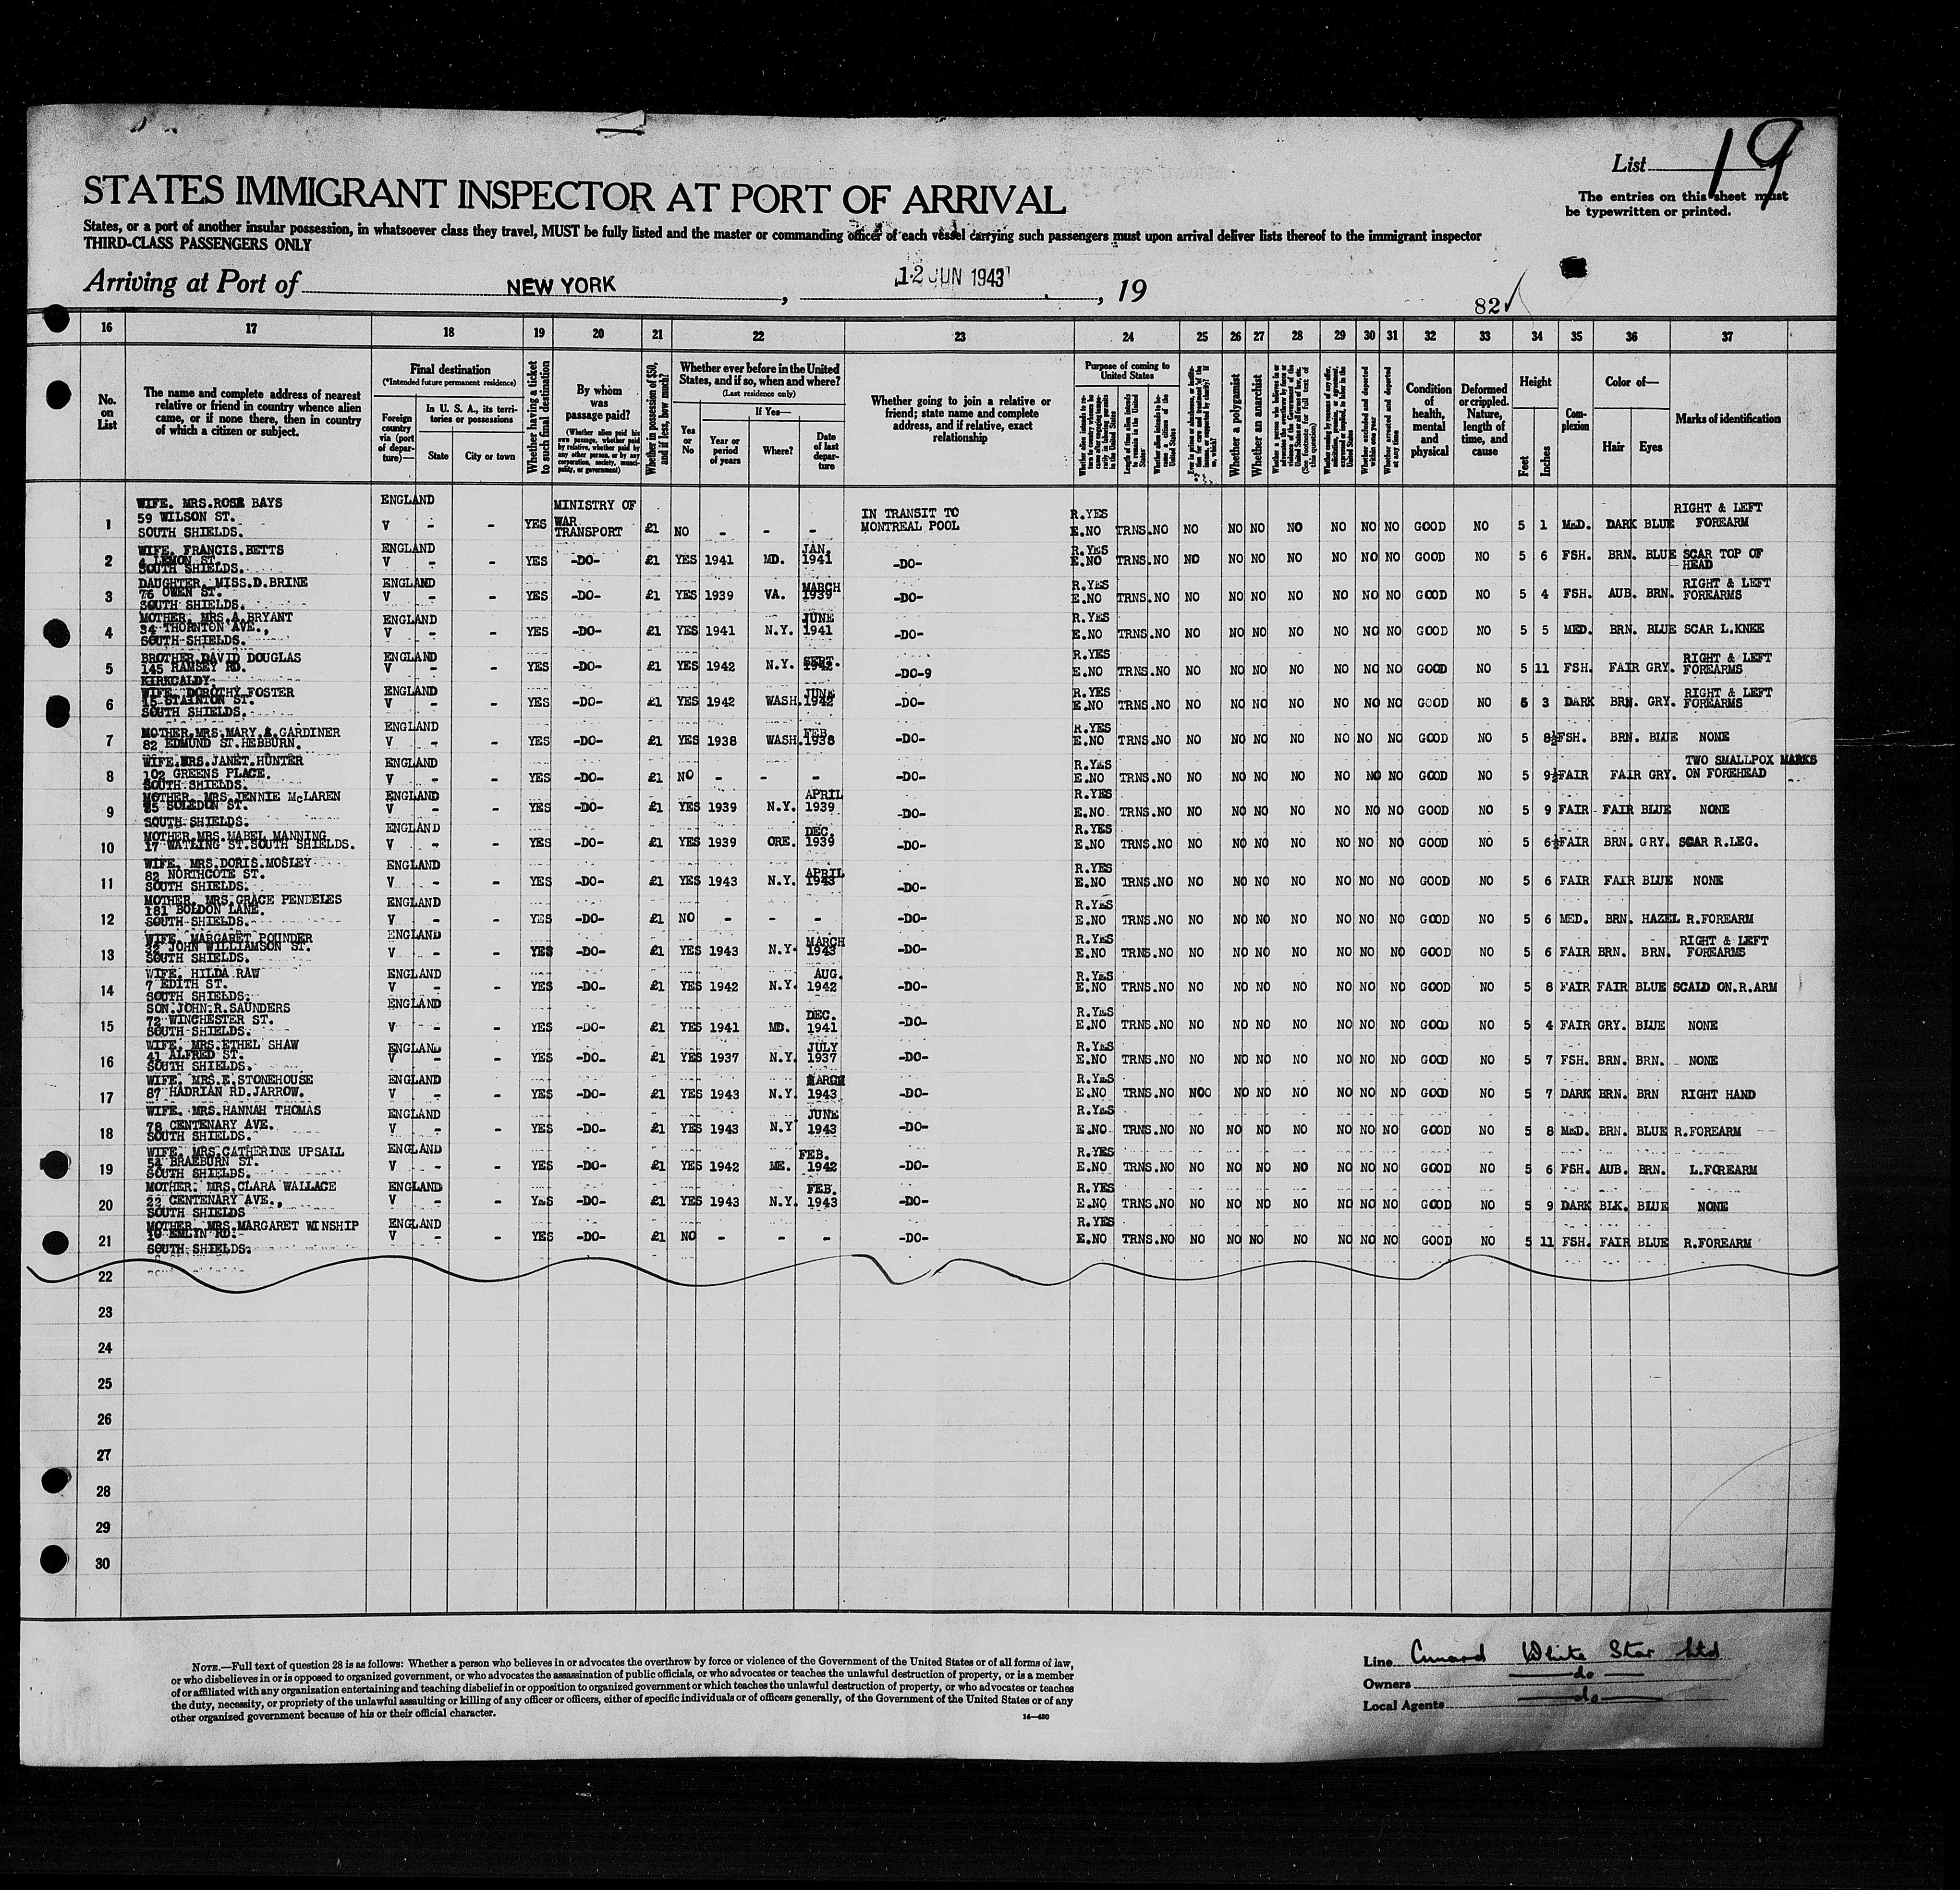 List 19
The entries on this sheet must
be typewritten or printed.
STATES IMMIGRANT INSPECTOR AT PORT OF ARRIVAL
States, or a port of another insular possession, in whatsoever class they travel, MUST be fully listed and the master or commanding officer of each vessel carrying such passengers must upon arrival deliver lists thereof to the immigrant inspector
THIRD-CLASS PASSENGERS ONLY
Arriving at Port of NEW YORK, 12 JUN 1943, 19
82
16 17 18 19 20 21 22 23 24 25 26 27 28 29 30 31 32 33 34 35 36 37
No. on List
The name and complete address of nearest
relative or friend in country whence alien
came, or if none there, then in country
of which a citizen or subject.
Final destination
(*Intended future permanent residence)
Foreign country via (port of departure)—
In U. S. A., its territories or possessions
State
City or town
Whether having a ticket to such final destination
By whom was passage paid?
(Whether alien paid his own passage, whether paid by relative, whether paid by any other person, or by any corporation, society, municipality, or government)
Whether in possession of $50, and if less, how much?
Whether ever before in the United States, and if so, when and where?
(Last residence only)
Yes or No
If Yes—
Year or period of years
Where?
Date of last departure
Whether going to join a relative or
friend; state name and complete
address, and if relative, exact
relationship
Purpose of coming to United States
Length of time alien intends to remain in the United States
Whether alien intends to become a citizen of the United States
Whether a polygamist
Whether an anarchist
(See footnote for full text of this question)
Whether excluded and deported within one year
Whether arrested and deported at any time
Condition of health, mental and physical
Deformed or crippled. Nature, length of time, and cause
Height
Feet
Inches
Complexion
Color of—
Hair
Eyes
Marks of identification
1 WIFE. MRS.ROSE BAYS 59 WILSON ST. SOUTH SHIELDS. ENGLAND V - - YES MINISTRY OF WAR TRANSPORT £1 NO - - - IN TRANSIT TO MONTREAL POOL R.YES E.NO TRNS.NO NO NO NO NO NO NO NO GOOD NO 5 1 MED. DARK BLUE RIGHT & LEFT FOREARM
2 WIFE. FRANCIS.BETTS 4 LEMON ST. SOUTH SHIELDS. ENGLAND V - - YES -DO- £1 YES 1941 MD. JAN. 1941 -DO- R.YES E.NO TRNS.NO NO NO NO NO NO NO NO GOOD NO 5 6 FSH. BRN. BLUE SCAR TOP OF HEAD
3 DAUGHTER. MISS.D.BRINE 76 OWEN ST. SOUTH SHIELDS. ENGLAND V - - YES -DO- £1 YES 1939 VA. MARCH 1939 -DO- R.YES E.NO TRNS.NO NO NO NO NO NO NO NO GOOD NO 5 4 FSH. AUB. BRN. RIGHT & LEFT FOREARMS
4 MOTHER. MRS.A.BRYANT 34 THORNTON AVE., SOUTH SHIELDS. ENGLAND V - - YES -DO- £1 YES 1941 N.Y. JUNE 1941 -DO- R.YES E.NO TRNS.NO NO NO NO NO NO NO NO GOOD NO 5 5 MED. BRN. BLUE SCAR L.KNEE
5 BROTHER.DAVID DOUGLAS 145 RAMSEY RD. KIRKCALDY ENGLAND V - - YES -DO- £1 YES 1942 N.Y. SEPT. 1942 -DO-9 R.YES E.NO TRNS.NO NO NO NO NO NO NO NO GOOD NO 5 11 FSH. FAIR GRY. RIGHT & LEFT FOREARMS
6 WIFE. DOROTHY FOSTER 15 STAINTON ST. SOUTH SHIELDS. ENGLAND V - - YES -DO- £1 YES 1942 WASH. JUNE 1942 -DO- R.YES E.NO TRNS.NO NO NO NO NO NO NO NO GOOD NO 5 3 DARK BRN. GRY. RIGHT & LEFT FOREARMS
7 MOTHER.MRS.MARY.A.GARDINER 82 EDMUND ST.HEBBURN. ENGLAND V - - YES -DO- £1 YES 1938 WASH. FEB. 1938 -DO- R.YES E.NO TRNS.NO NO NO NO NO NO NO NO GOOD NO 5 8½ FSH. BRN. BLUE NONE
8 WIFE.MRS.JANET.HUNTER 102 GREENS PLACE. SOUTH.SHIELDS. ENGLAND V - - YES -DO- £1 NO - - - -DO- R.YES E.NO TRNS.NO NO NO NO NO NO NO NO GOOD NO 5 9½ FAIR FAIR GRY. TWO SMALLPOX MARKS ON FOREHEAD
9 MOTHER. MRS.JENNIE McLAREN ST. SOUTH SHIELDS. ENGLAND V - - YES -DO- £1 YES 1939 N.Y. APRIL 1939 -DO- R.YES E.NO TRNS.NO NO NO NO NO NO NO NO GOOD NO 5 9 FAIR FAIR BLUE NONE
10 MOTHER.MRS.MABEL MANNING 17 WATLING ST.SOUTH SHIELDS. ENGLAND V - - YES -DO- £1 YES 1939 ORE. DEC. 1939 -DO- R.YES E.NO TRNS.NO NO NO NO NO NO NO NO GOOD NO 5 6½ FAIR BRN. GRY. SCAR R.LEG.
11 WIFE. MRS.DORIS.MOSLEY 82 NORTHCOTE ST. SOUTH SHIELDS. ENGLAND V - - YES -DO- £1 YES 1943 N.Y. APRIL 1943 -DO- R.YES E.NO TRNS.NO NO NO NO NO NO NO NO GOOD NO 5 6 FAIR FAIR BLUE NONE
12 MOTHER. MRS.GRACE PENDELES 181 BOLDON LANE. SOUTH SHIELDS. ENGLAND V - - YES -DO- £1 NO - - - -DO- R.YES E.NO TRNS.NO NO NO NO NO NO NO NO GOOD NO 5 6 MED. BRN. HAZEL R.FOREARM
13 WIFE. MARGARET POUNDER 32 JOHN WILLIAMSON ST. SOUTH SHIELDS. ENGLAND V - - YES -DO- £1 YES 1943 N.Y. MARCH 1943 -DO- R.YES E.NO TRNS.NO NO NO NO NO NO NO NO GOOD NO 5 6 FAIR BRN. BRN. RIGHT & LEFT FOREARMS
14 WIFE. HILDA RAW 7 EDITH ST. SOUTH SHIELDS. ENGLAND V - - YES -DO- £1 YES 1942 N.Y. AUG. 1942 -DO- R.YES E.NO TRNS.NO NO NO NO NO NO NO NO GOOD NO 5 8 FAIR FAIR BLUE SCALD ON.R.ARM
15 SON.JOHN.R.SAUNDERS 72 WINCHESTER ST. SOUTH SHIELDS. ENGLAND V - - YES -DO- £1 YES 1941 MD. DEC. 1941 -DO- R.YES E.NO TRNS.NO NO NO NO NO NO NO NO GOOD NO 5 4 FAIR GRY. BLUE NONE
16 WIFE. MRS.ETHEL SHAW 41 ALFRED ST. SOUTH SHIELDS. ENGLAND V - - YES -DO- £1 YES 1937 N.Y. JULY 1937 -DO- R.YES E.NO TRNS.NO NO NO NO NO NO NO NO GOOD NO 5 7 FSH. BRN. BRN. NONE
17 WIFE. MRS.E.STONEHOUSE 87 HADRIAN RD.JARROW. ENGLAND V - - YES -DO- £1 YES 1943 N.Y. MARCH 1943 -DO- R.YES E.NO TRNS.NO NOO NO NO NO NO NO NO GOOD NO 5 7 DARK BRN. BRN RIGHT HAND
18 WIFE. MRS.HANNAH THOMAS 78 CENTENARY AVE. SOUTH SHIELDS. ENGLAND V - - YES -DO- £1 YES 1943 N.Y JUNE 1943 -DO- R.YES E.NO TRNS.NO NO NO NO NO NO NO NO GOOD NO 5 8 MED. BRN. BLUE R.FOREARM
19 WIFE. MRS.CATHERINE UPSALL 54 BRAEBURN ST. SOUTH SHIELDS. ENGLAND V - - YES -DO- £1 YES 1942 ME. FEB. 1942 -DO- R.YES E.NO TRNS.NO NO NO NO NO NO NO NO GOOD NO 5 6 FSH. AUB. BRN. L.FOREARM
20 MOTHER. MRS.CLARA WALLACE 22 CENTENARY AVE., SOUTH SHIELDS ENGLAND V - - YES -DO- £1 YES 1943 N.Y. FEB. 1943 -DO- R.YES E.NO TRNS.NO NO NO NO NO NO NO NO GOOD NO 5 9 DARK BLK. BLUE NONE
21 MOTHER. MRS.MARGARET WINSHIP 10 EMLYN RD. SOUTH SHIELDS. ENGLAND V - - YES -DO- £1 NO - - - -DO- R.YES E.NO TRNS.NO NO NO NO NO NO NO NO GOOD NO 5 11 FSH. FAIR BLUE R.FOREARM
22
23
24
25
26
27
28
29
30
NOTE.—Full text of question 28 is as follows: Whether a person who believes in or advocates the overthrow by force or violence of the Government of the United States or of all forms of law,
or who disbelieves in or is opposed to organized government, or who advocates the assassination of public officials, or who advocates or teaches the unlawful destruction of property, or is a member
of or affiliated with any organization entertaining and teaching disbelief in or opposition to organized government or which teaches the unlawful destruction of property, or who advocates or teaches
the duty, necessity, or propriety of the unlawful assaulting or killing of any officer or officers, either of specific individuals or of officers generally, of the Government of the United States or of any
other organized government because of his or their official character.
14—430
Line Cunard White Star Ltd
Owners do
Local Agents do